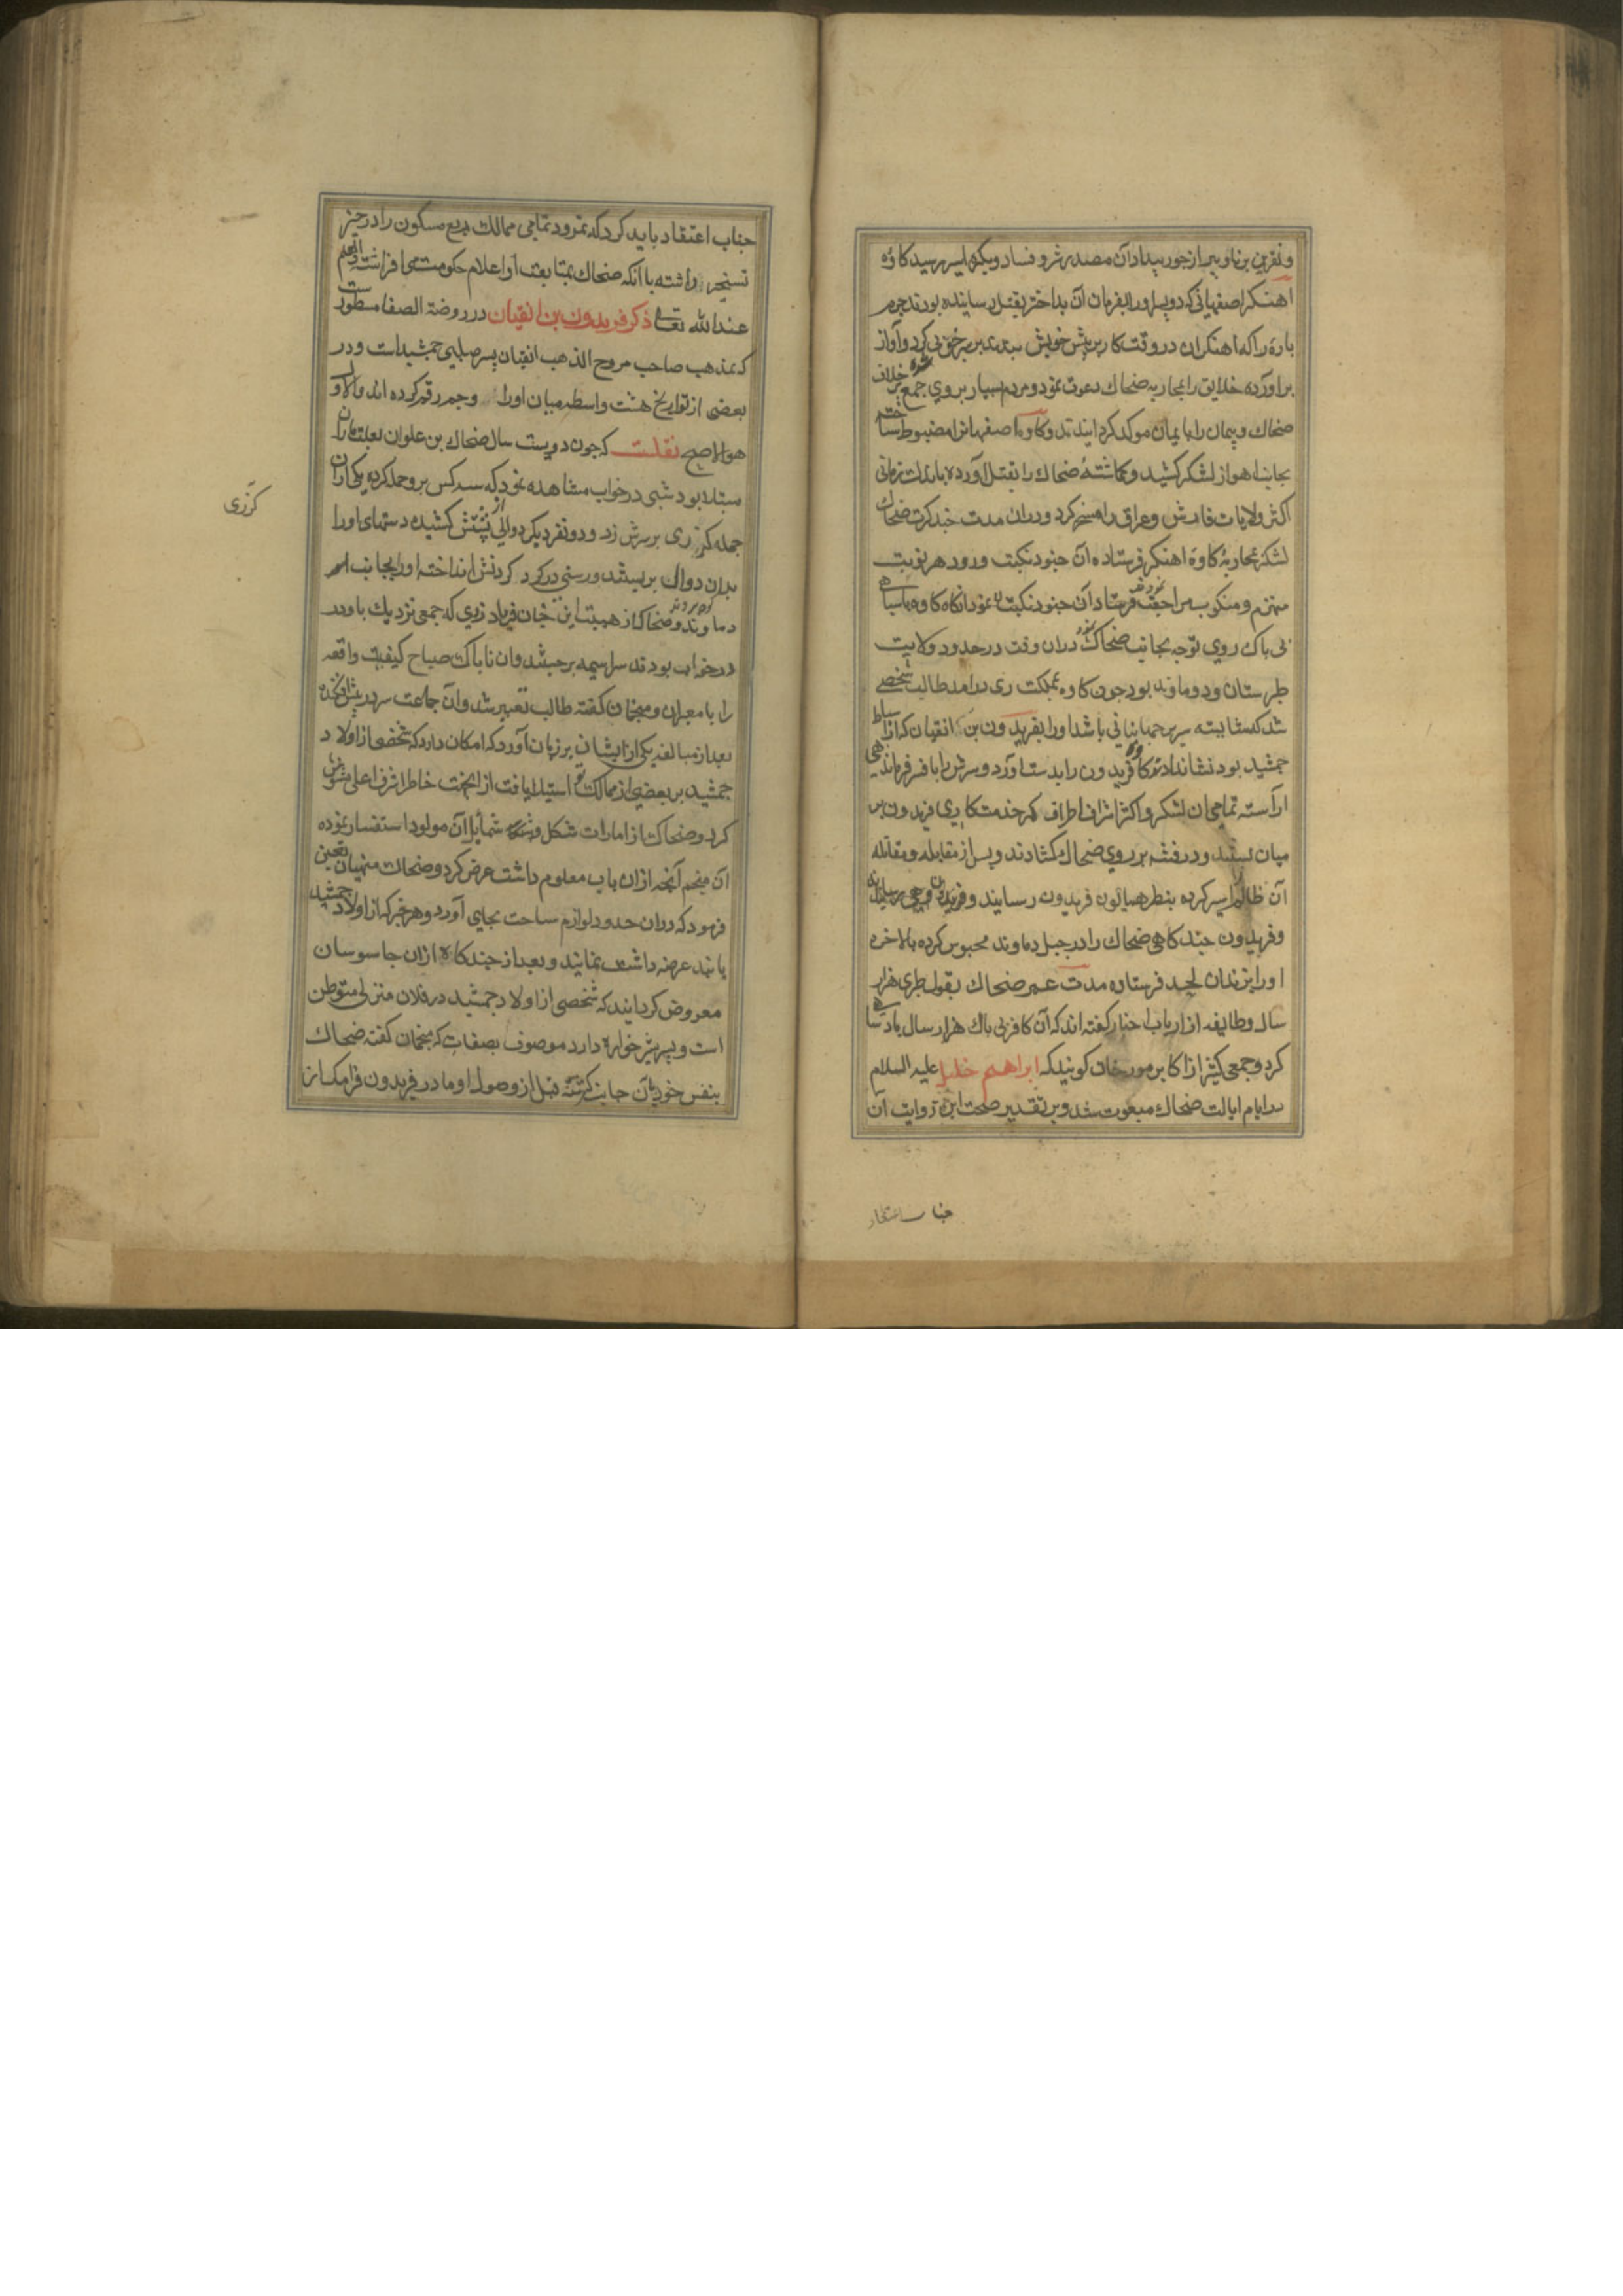 و نفرین برنا و پیر از جور بیداد آن مصدر شر و فساد ویکی ایسر رسید کاوه
اهنکر اصفهانی که دو پسر اورا بفرمان آن بداختر بقتل رسانیده بودند جرم
باره را که اهنکران در وقت کار بر پیش خویش بندند بر سر جوبی کرد و آواز
براورده خلایق را بمحاربه ضحاک دعوت نمود و مردم بسیار بروی جمع شده بر خلاف
ضحاک و پیمان را بایمان موکد کردانیدند و کاوه اصفهانرا مضبوط ساخته
بجانب اهواز لشکر کشید و کماشتهٔ ضحاک را بقتل آورده باندک زمانی
اکثر ولایات فارس و عراق را مسخر کرد و دران مدت چند کرت ضحاک
لشکر بمحاربهٔ کاوه اهنکر فرستاده آن جنود نکبت ورود هر نوبت
منهزم و منکوب مراجعت نمودند فرستاد آن جنود نکبت نمود انکاه کاوه باسپاهی
بی باک روی توجه بجانب ضحاک نهاد دران وقت در حدود ولایت
طبرستان و دوماوند بود جون کاوه بمملکت ری درامد طالب شخصی
شد که شایسته سریر جهانبانی باشد اورا بفریدون بن اتقیان که از اسباط
جمشید بود نشان دادند کاوه فریدون را بدست آورد و سرش را بافسر فرماندهی
اراسته تمامی ان لشکر و اکثر اشراف اطراف کمر خدمتکاری فریدون بر
میان بستند و درفشه بر روی ضحاک کشادند و پس از مقابله و مقاتله
آن ظالم را اسیر کرده بنظر همایون فریدون رسانیدند
و فریدون چندکاهی ضحاک را در جبل دماوند محبوس کرده بالاخره
اورا بزندان لحد فرستاده مدت عمر ضحاک بقول طبری هزار
سال و طایفه از ارباب اخبار کفته اند که آن کافر بی باک هزار سال بادشاهی
کرد و جمعی کثیر از اکابر مورخان کویند که ابراهیم خلیل علیه السلام
در ایام ایالت ضحاک مبعوث شد و بر تقدیر صحت این روایت آن
جناب اعتقاد
جناب اعتقاد باید کرد که نمرود تمامی ممالک ربع مسکون را در حیز
تسخیر داشته با آنکه ضحاک بمتابعت او اعلام حکومت می افراشت والعلم
عندالله تعالی ذکر فریدون بن اتقیان در روضة الصفا مسطورست
که بمذهب صاحب مروج الذهب اتقیان پسر صلبی جمشیدست و در
بعضی از تواریخ هشت واسطه میان اورا و جم رقم کرده اند والاول
هو الاصح نقلست که جون دویست سال ضحاک بن علوان بعلت ماران
مبتلا بود شبی در خواب مشاهده نمود که سه کس برو حمله کرده یکی ازان
جمله کرزی بر سرش زد و دو نفر دیکر دوالی از پشتش کشیده دستهای اورا
بدان دوال بر بستند و رسنی در کردنش انداخته اورا بجانب
دماوند بردند و ضحاک از هیبت این چنان فریاد زدی که جمعی نزدیک باو در
در خواب بودند سراسیمه برجستند وان ناباک صباح کیفیت واقعه
را با معبران و منجمان کفته طالب تعبیر شد وآن جماعت سر در پیش افکنده
بعد از مبالغه یکی از ایشان بر زبان آورد که امکان دارد که شخصی از اولاد
جمشید بر بعضی از ممالک تو استیلا یافت ازین جهت خاطر اشرف اعلی مشوش
کرد و ضحاک از امارات شکل و شمایل آن مولود استفسار نموده
آن منجم آنچه ازان باب معلوم داشت عرض کرد و ضحاک منهیان تعین
فرمود که دران حدود لوازم سیاحت بجای آورد و هر خبر که از اولاد جمشید
یابند عرضه داشت نمایند و بعد از چندکاه ازان جاسوسان
معروض کردانیدند که شخصی از اولاد جمشید در فلان منزل متوطن
است و پسر شیرخواره دارد موصوف بصفات که منجمان کفته ضحاک
بنفس خود بآن جانب کشته قبل از وصول او مادر فریدون فرامک از
کرزی